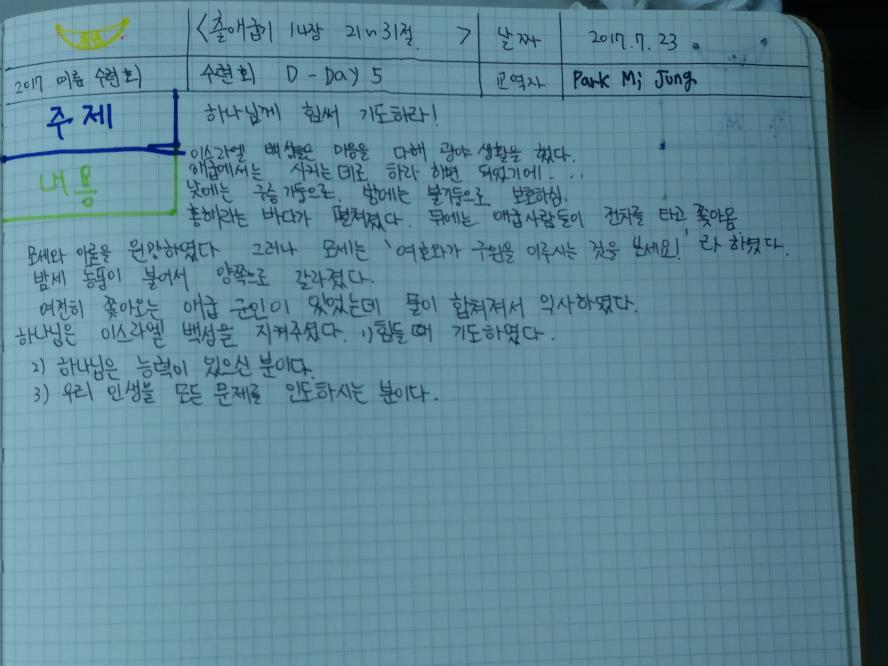 <출애굽기 14장 21~31절> 날짜 2017.7.23
2017 여름 수련회 수련회 D-Day 5 교역자 Park Mi Jung
주제 하나님께 힘써 기도하라!
내용
이스라엘 백성들은 마음을 다해 광야 생활을 했다.
애굽에서는 시키는데로 하라 하면 되었기에...
낮에는 구름 기둥으로, 밤에는 불기둥으로 보호하심.
홍해라는 바다가 펼쳐졌다. 뒤에는 애굽사람들이 전차를 타고 쫓아옴
모세와 아론을 원망하였다 그러나 모세는 '여호와가 구원을 이루시는 것을 보세요!' 라 하였다.
밤세 동풍이 불어서 양쪽으로 갈라졌다.
여전히 쫓아오는 애굽 군인이 있었는데 물이 합쳐져서 익사하였다.
하나님은 이스라엘 백성을 지켜주셨다. 1) 힘들 때 기도하였다.
2) 하나님은 능력이 있으신 분이다.
3) 우리 인생을 모든 문제를 인도하시는 분이다.